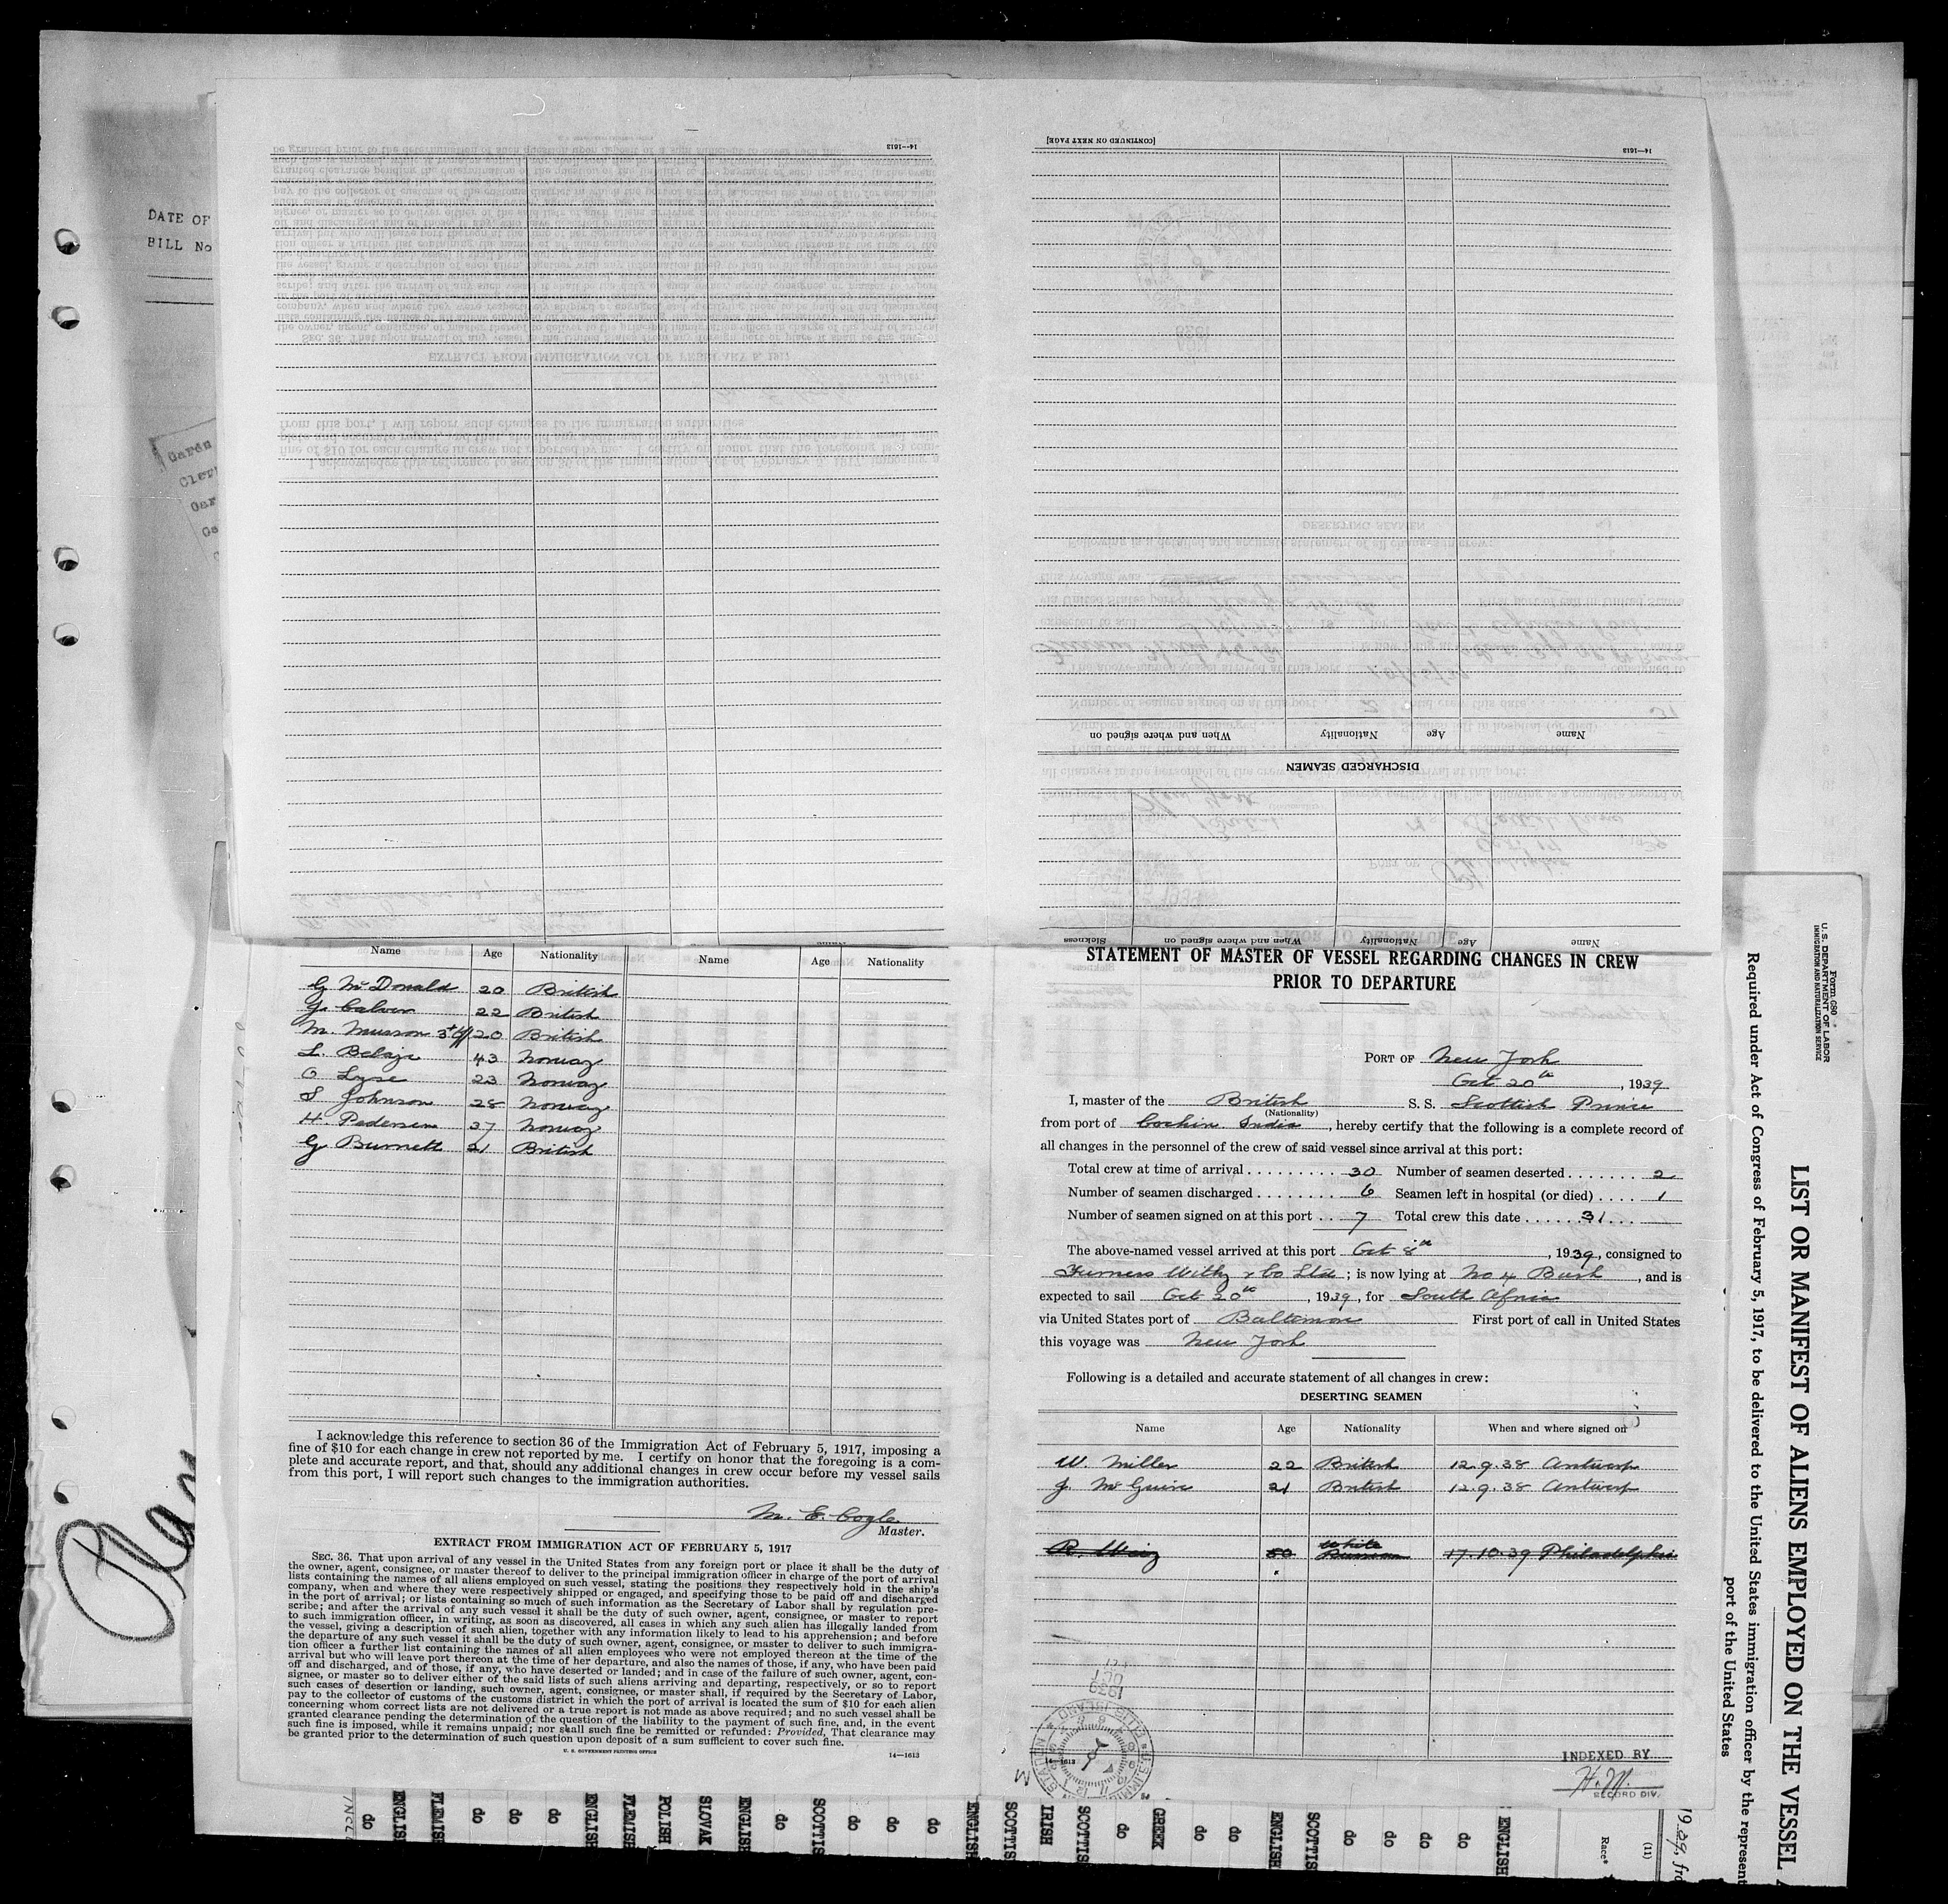 DATE OF
BILL No
[CONTINUED ON NEXT PAGE]
14—1613
14—1613
DISCHARGED SEAMEN
Name Age Nationality When and where signed on
Name Age Nationality When and where signed on Sickness
Name Age Nationality Name Age Nationality
G McDonald 20 British
J. Calver 22 British
M. Musson 20 British
L. 43 Norway
O Lyse 23 Norway
S Johnson 28 Norway
H. Pedersen 37 Norway
G Burnett 21 British
I acknowledge this reference to section 36 of the Immigration Act of February 5, 1917, imposing a
fine of $10 for each change in crew not reported by me. I certify on honor that the foregoing is a com-
plete and accurate report, and that, should any additional changes in crew occur before my vessel sails
from this port, I will report such changes to the immigration authorities.
M. E. Cogle
Master.
EXTRACT FROM IMMIGRATION ACT OF FEBRUARY 5, 1917
SEC. 36. That upon arrival of any vessel in the United States from any foreign port or place it shall be the duty of
the owner, agent, consignee, or master thereof to deliver to the principal immigration officer in charge of the port of arrival
lists containing the names of all aliens employed on such vessel, stating the positions they respectively hold in the ship's
company, when and where they were respectively shipped or engaged, and specifying those to be paid off and discharged
in the port of arrival; or lists containing so much of such information as the Secretary of Labor shall by regulation pre-
scribe; and after the arrival of any such vessel it shall be the duty of such owner, agent, consignee, or master to report
to such immigration officer, in writing, as soon as discovered, all cases in which any such alien has illegally landed from
the vessel, giving a description of such alien, together with any information likely to lead to his apprehension; and before
the departure of any such vessel it shall be the duty of such owner, agent, consignee, or master to deliver to such immigra-
tion officer a further list containing the names of all alien employees who were not employed thereon at the time of the
arrival but who will leave port thereon at the time of her departure, and also the names of those, if any, who have been paid
off and discharged, and of those, if any, who have deserted or landed; and in case of the failure of such owner, agent, con-
signee, or master so to deliver either of the said lists of such aliens arriving and departing, respectively, or so to report
such cases of desertion or landing, such owner, agent, consignee, or master shall, if required by the Secretary of Labor,
pay to the collector of customs of the customs district in which the port of arrival is located the sum of $10 for each alien
concerning whom correct lists are not delivered or a true report is not made as above required; and no such vessel shall be
granted clearance pending the determination of the question of the liability to the payment of such fine, and, in the event
such fine is imposed, while it remains unpaid; nor shall such fine be remitted or refunded: Provided, That clearance may
be granted prior to the determination of such question upon deposit of a sum sufficient to cover such fine.
U. S. GOVERNMENT PRINTING OFFICE 14—1613
STATEMENT OF MASTER OF VESSEL REGARDING CHANGES IN CREW
PRIOR TO DEPARTURE
PORT OF New York
Oct 20th, 1939
I, master of the British S. S. Scottish Prince
(Nationality)
from port of Cochin India, hereby certify that the following is a complete record of
all changes in the personnel of the crew of said vessel since arrival at this port:
Total crew at time of arrival 30 Number of seamen deserted 2
Number of seamen discharged 6 Seamen left in hospital (or died) 1
Number of seamen signed on at this port 7 Total crew this date 31
The above-named vessel arrived at this port Oct 8th, 1939, consigned to
Furness Withy & Co Ltd; is now lying at No 4 Bush, and is
expected to sail Oct 20th, 1939, for South Africa
via United States port of Baltimore First port of call in United States
this voyage was New York
Following is a detailed and accurate statement of all changes in crew:
DESERTING SEAMEN
Name Age Nationality When and where signed on
W. Miller 22 British 12.9.38 Antwerp
J. McGuire 21 British 12.9.38 Antwerp
R. Weig 50 White Russian 17.10.39 Philadelphia
1939
OCT
14—1613
INDEXED BY
H.M.
RECORD DIV.
Form 680
U. S. DEPARTMENT OF LABOR
IMMIGRATION AND NATURALIZATION SERVICE
LIST OR MANIFEST OF ALIENS EMPLOYED ON THE VESSEL
Required under Act of Congress of February 5, 1917, to be delivered to the United States immigration officer by the represent
port of the United States
do
ENGLISH
FLEMISH
do
do
do
ENGLISH
FLEMISH
POLISH
SLOVAK
ENGLISH
do
SCOTTIS
do
do
do
ENGLISH
SCOTTIS
IRISH
SCOTTIS
do
GREEK
do
do
ENGLISH
SCOTTIS
do
do
do
do
ENGLISH
Race*
(11)